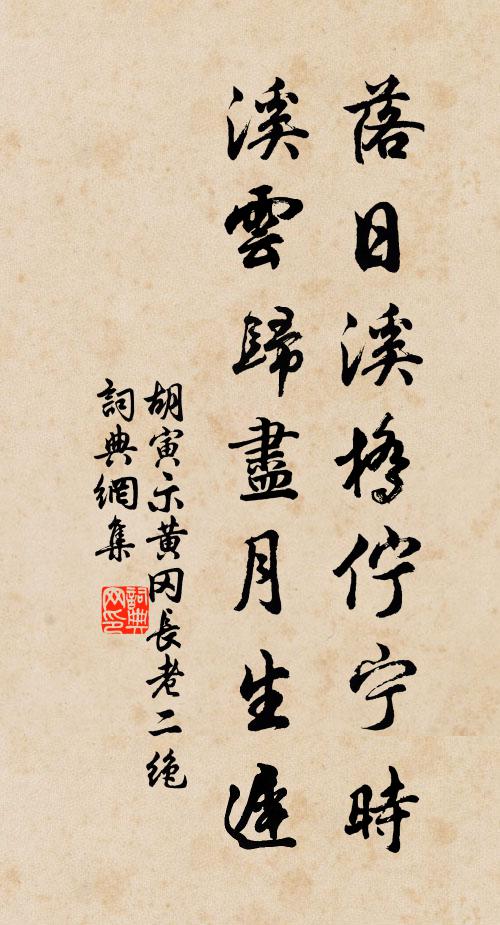 落日溪橋佇宁時
溪雲歸盡月生遲
胡寅示黄冈長老二绝
詞典網集
詞典网印